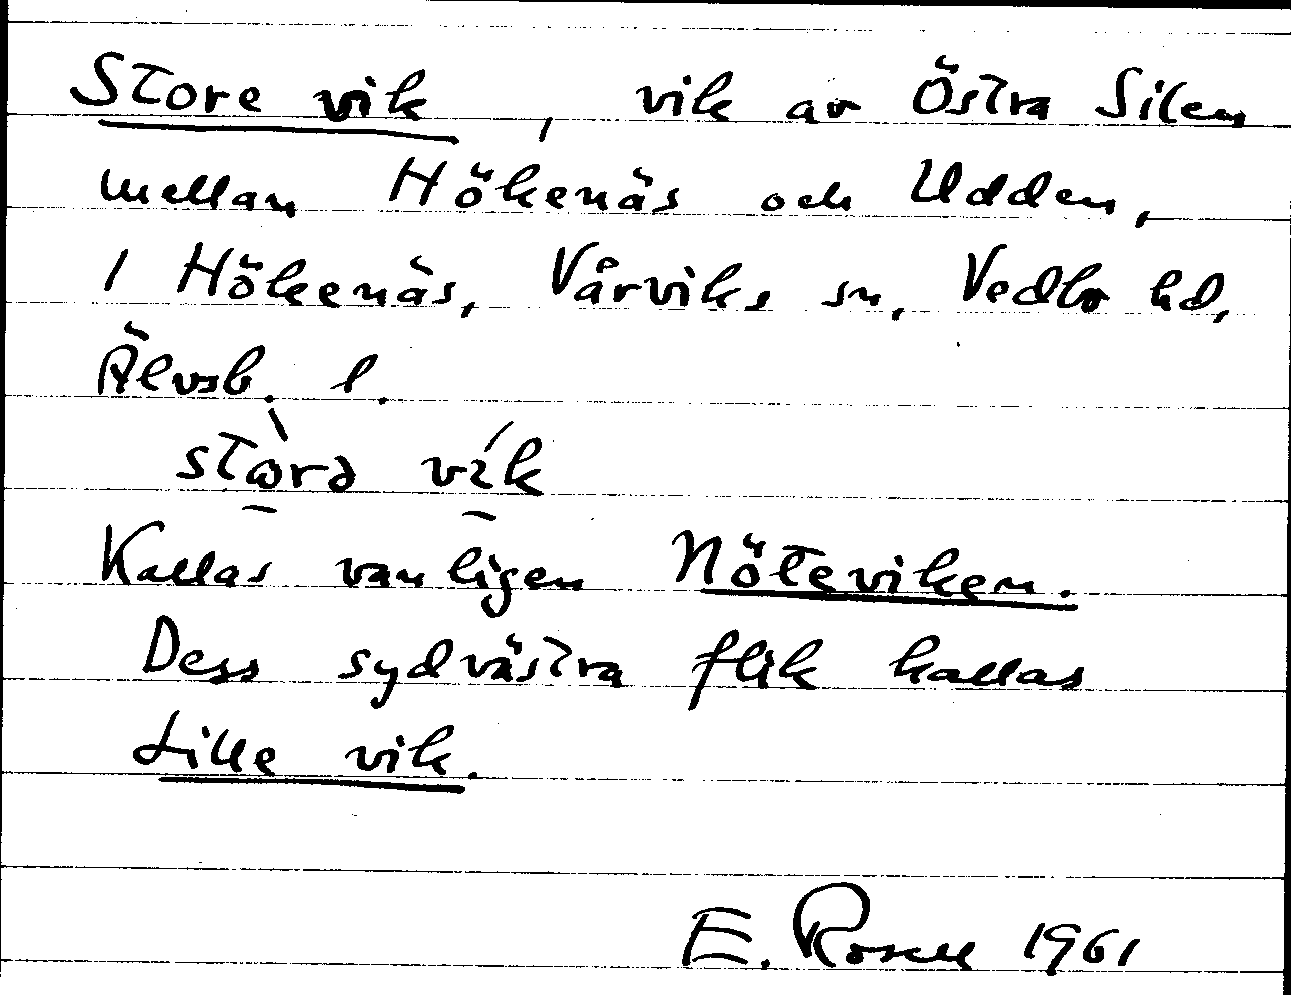 Store vik, vik av Östra Silen
mellan Hökenäs och Udden,
1 Hökenäs, Vårviks sn, Vedbo hd,
Älvsb. l.
stɷ̀rə vík
Kallas vanligen Nöteviken.
Dess sydvästra flik kallas
Lille vik.
E. Rosell 1961